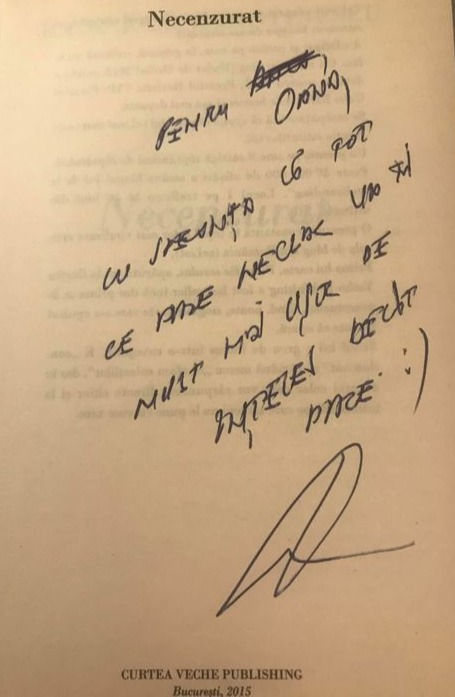 Necenzurat
PENTRU
OANA,
CU SPERANȚA CĂ TOT
CE PARE NECLAR VA FI
MULT MAI UȘOR DE
ÎNȚELES DECÂT
PARE. :)
CURTEA VECHE PUBLISHING
București, 2015